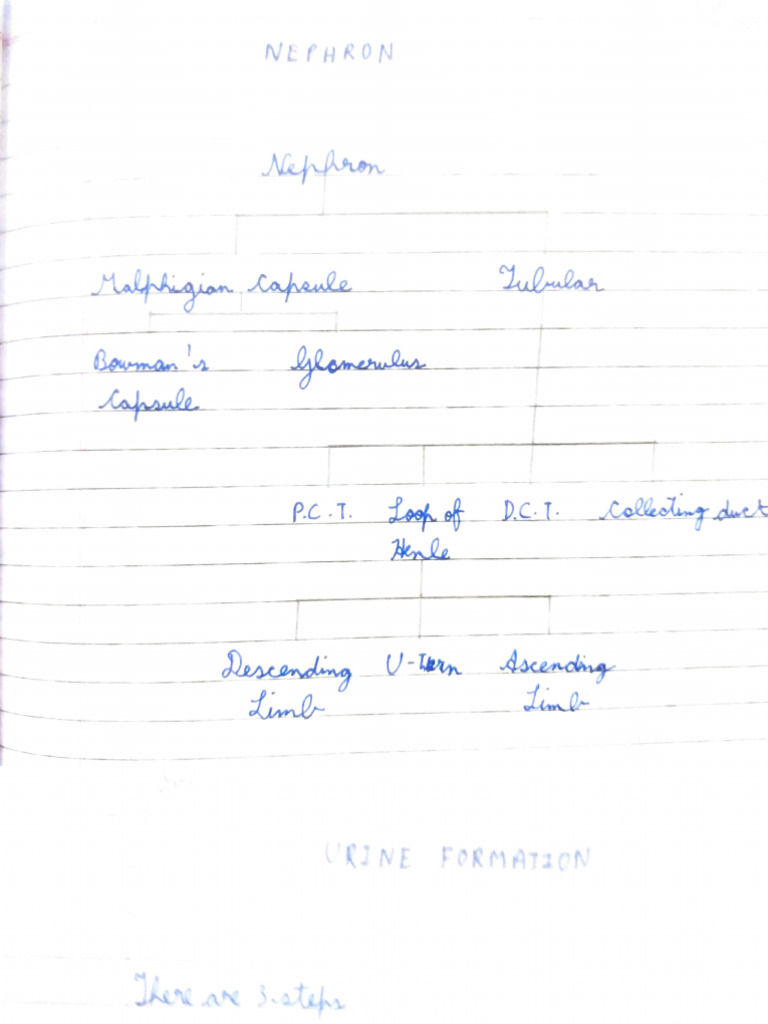 NEPHRON
Nephron
Malphigian Capsule Tubular
Bowman's Glomerulus
Capsule
P.C.T. Loop of D.C.T. Collecting duct
Henle
Descending U-turn Ascending
Limb Limb
URINE FORMATION
There are 3 steps